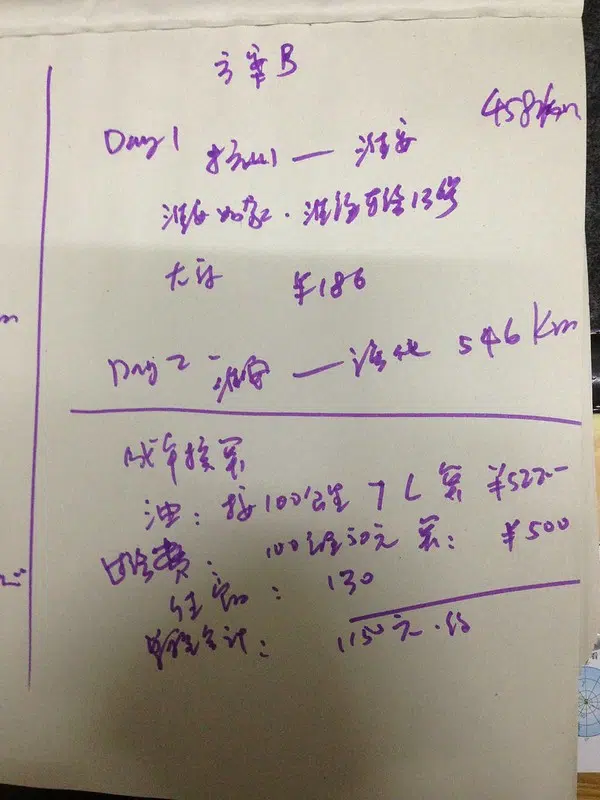 方案B
458km
Day1 杭州 — 淮安
淮安如家·淮海东路13号
大床 ¥186
Day2 淮安 — 546Km
成本核算
油：按100公里7L算 ¥522-
过路费：100公里50元算：¥500
住宿：130
单程合计：1150元.